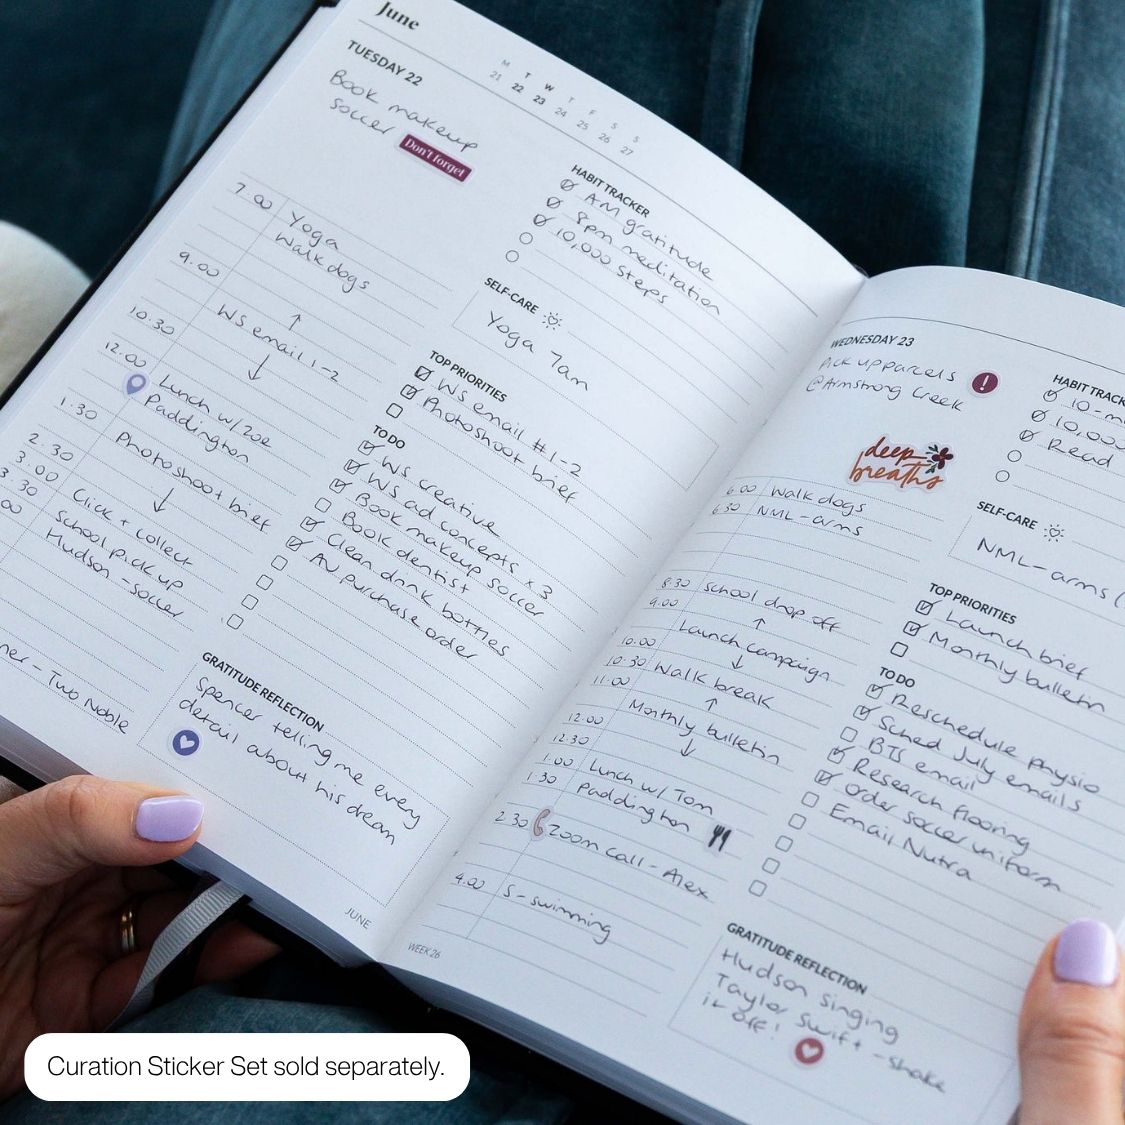 June
TUESDAY 22
M T W T F S S
21 22 23 24 25 26 27
Book makeup
soccer
Don't forget
7.00 Yoga
Walk dogs
9.00
↑
WS email 1-2
10.30 ↓
12.00 Lunch w/ Zoe
Paddington
1.30 Photoshoot brief
↓
2.30 Click + collect
3.00 School pick up
3.30 Hudson - soccer
00
ner - Two Noble
HABIT TRACKER
AM gratitude
8pm meditation
10,000 steps
SELF-CARE
Yoga 7am
TOP PRIORITIES
WS email #1-2
Photoshoot brief
TO DO
WS creative
WS ad concepts x 3
Book makeup soccer
Book dentist
Clean drink bottles
AV purchase order
GRATITUDE REFLECTION
Spencer telling me every
detail about his dream
JUNE
WEDNESDAY 23
Pick up parcels
@Armstrong Creek
!
deep
breaths
6.00 Walk dogs
6.30 NML-arms
8.30 School drop off
9.00 ↑
Launch campaign
10.00 ↓
10.30 Walk break
11.00 ↑
Monthly bulletin
12.00 ↓
12.30
1.00 Lunch w/ Tom
1.30 Paddington
2.30 Zoom call - Alex
4.00 S - swimming
WEEK 26
HABIT TRACK
10-m
10,000
Read
SELF-CARE
NML-arms (
TOP PRIORITIES
Launch brief
Monthly bulletin
TO DO
Reschedule physio
Sched July emails
BTS email
Research flooring
Order soccer uniform
Email Nutra
GRATITUDE REFLECTION
Hudson singing
Taylor Swift - shake
it off!
Curation Sticker Set sold separately.